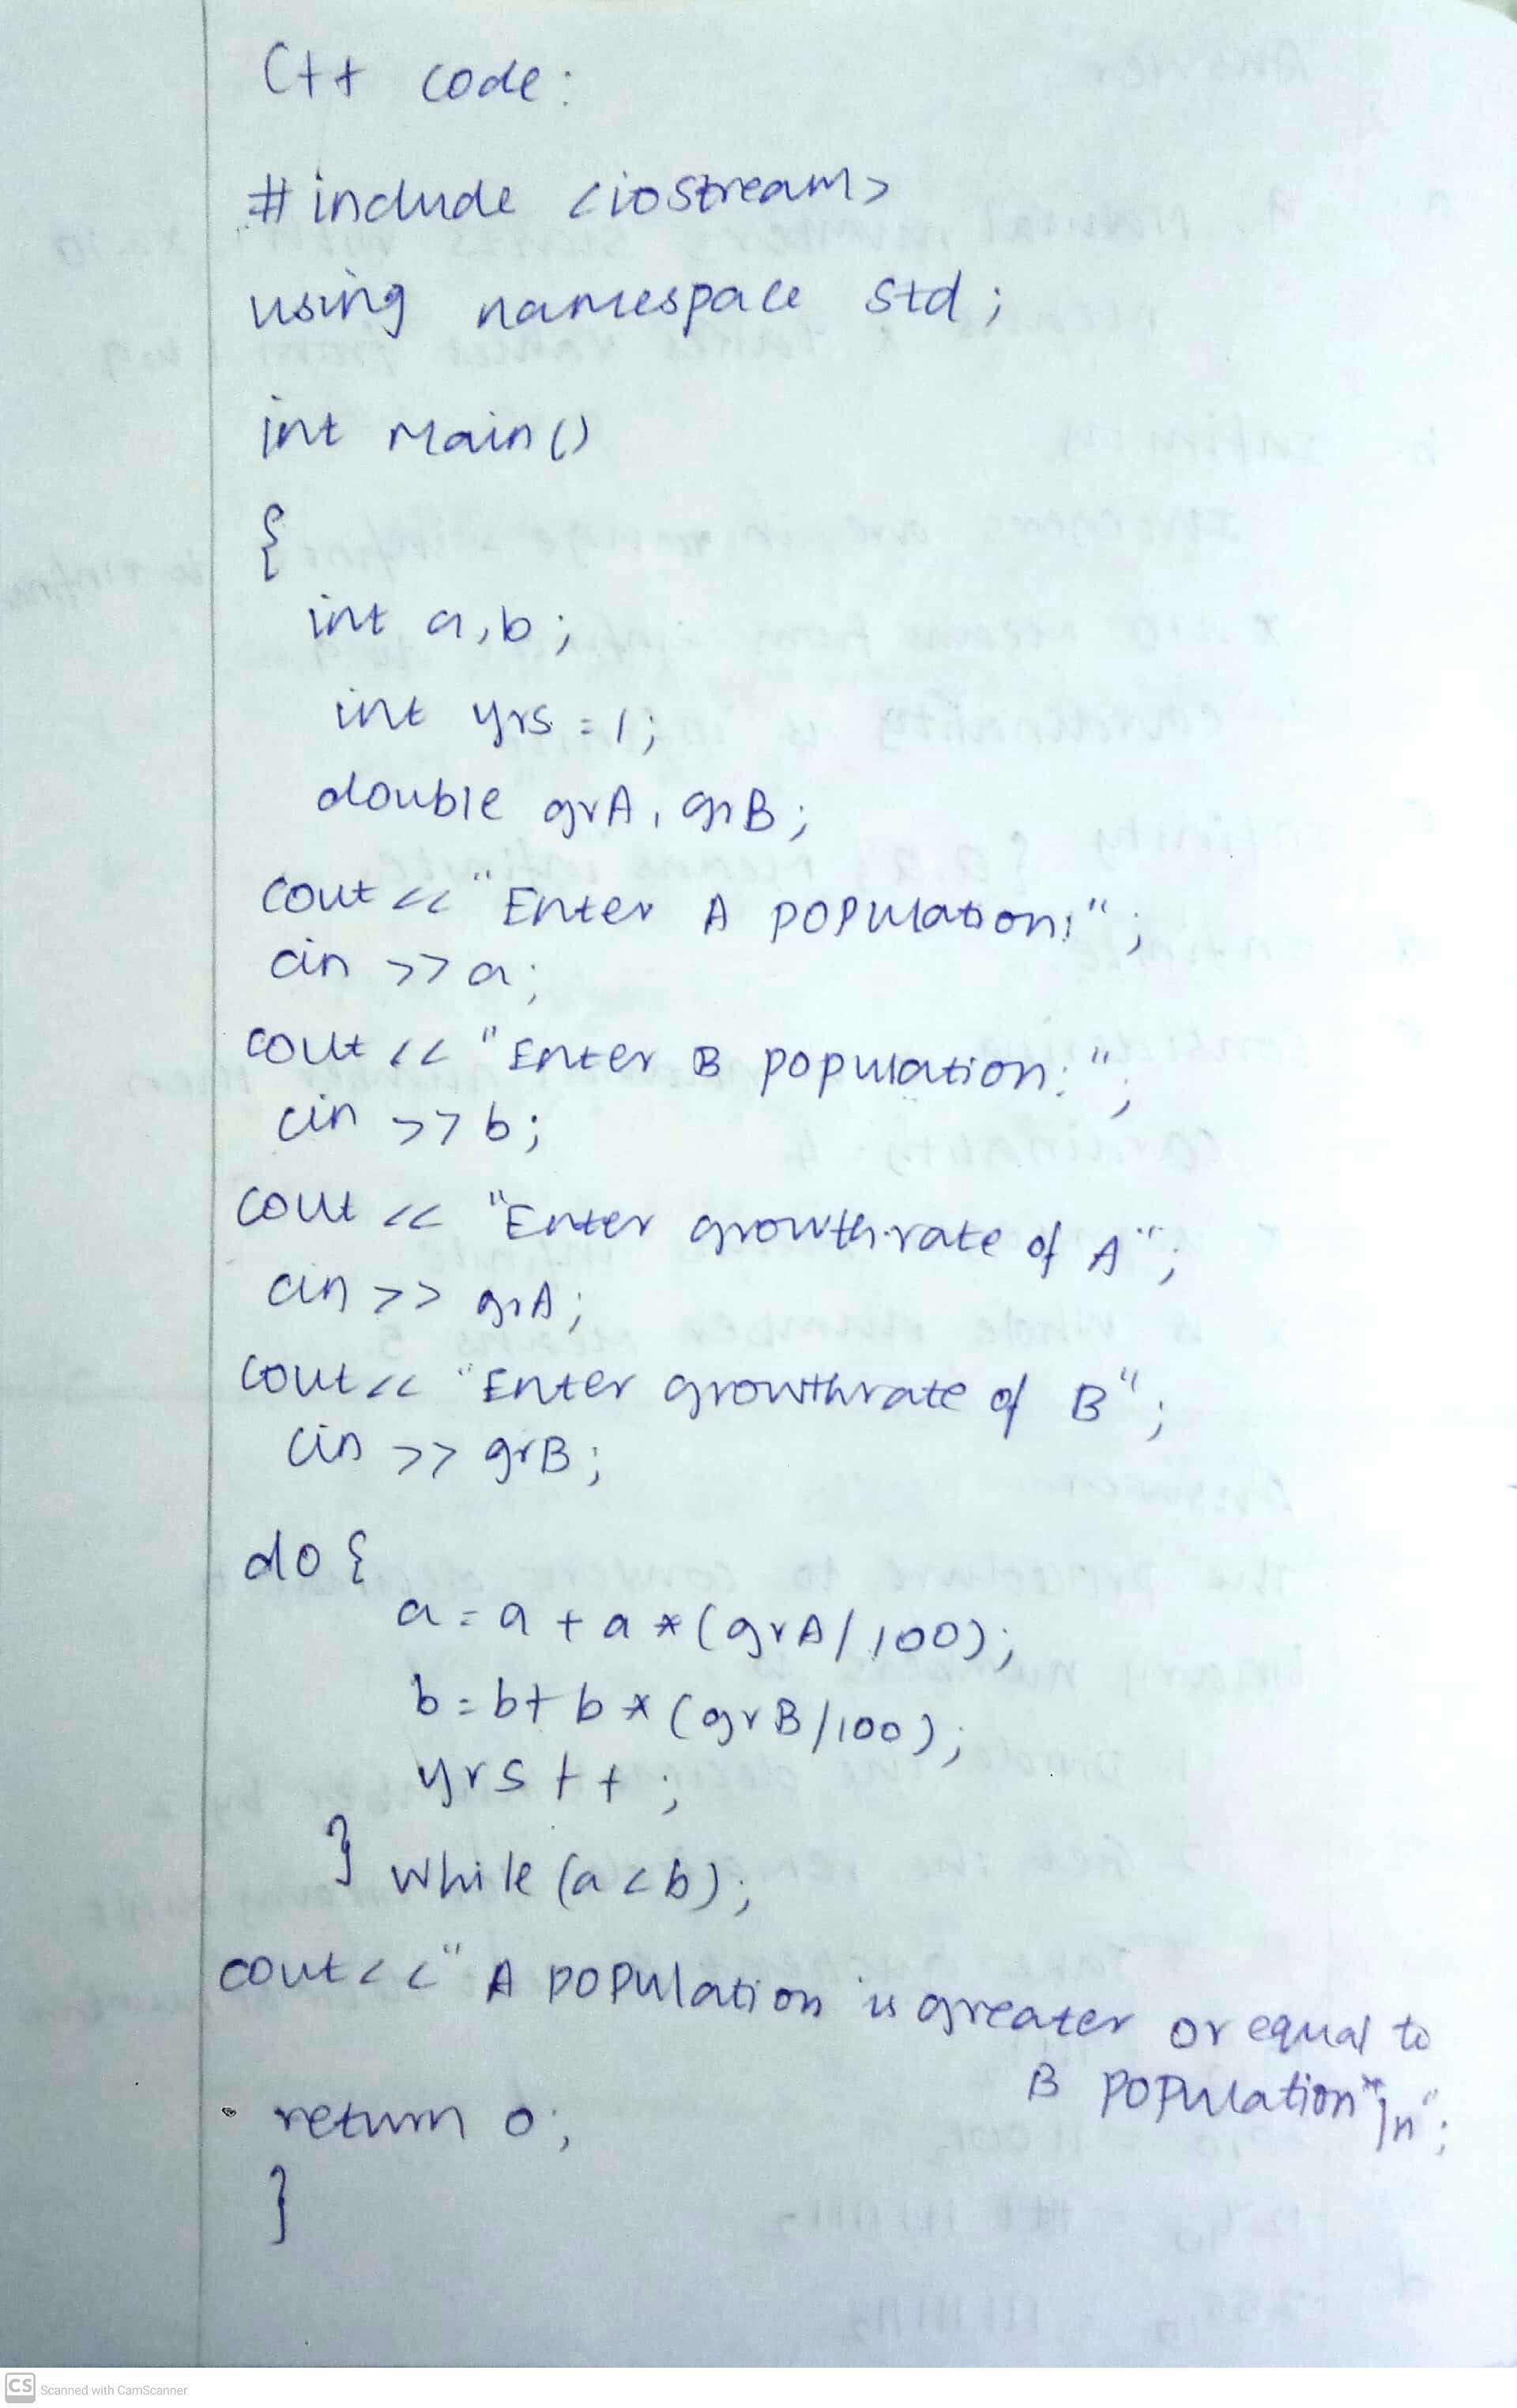 C++ code:
#include <iostream>
using namespace std;
int main()
{
int a,b;
int yrs=1;
double grA, grB;
cout<<"Enter A population:";
cin >>a;
cout<<"Enter B population:";
cin >>b;
cout << "Enter growthrate of A";
cin >> grA;
cout<< "Enter growthrate of B";
cin >> grB;
do {
a=a+a*(grA/100);
b=b+b*(grB/100);
yrs++;
} while (a<b);
cout<<"A population is greater or equal to
B population\n";
return 0;
}
CS Scanned with CamScanner